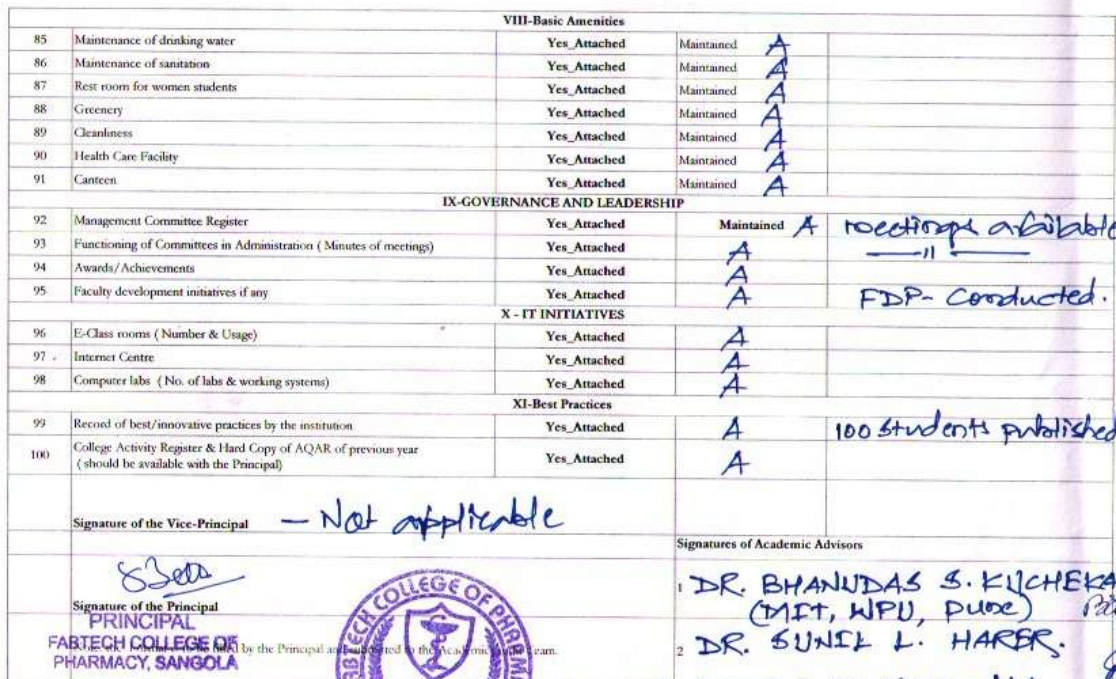 VIII-Basic Amenities
85 Maintenance of drinking water Yes_Attached Maintained A
86 Maintenance of sanitation Yes_Attached Maintained A
87 Rest room for women students Yes_Attached Maintained A
88 Greenery Yes_Attached Maintained A
89 Cleanliness Yes_Attached Maintained A
90 Health Care Facility Yes_Attached Maintained A
91 Canteen Yes_Attached Maintained A
IX-GOVERNANCE AND LEADERSHIP
92 Management Committee Register Yes_Attached Maintained A meetings available
93 Functioning of Committees in Administration ( Minutes of meetings) Yes_Attached A —11—
94 Awards/Achievements Yes_Attached A
95 Faculty development initiatives if any Yes_Attached A FDP- Conducted.
X - IT INITIATIVES
96 E-Class rooms ( Number & Usage) Yes_Attached A
97 Internet Centre Yes_Attached A
98 Computer labs ( No. of labs & working systems) Yes_Attached A
XI-Best Practices
99 Record of best/innovative practices by the institution Yes_Attached A 100 students published
100 College Activity Register & Hard Copy of AQAR of previous year
( should be available with the Principal) Yes_Attached A
Signature of the Vice-Principal — Not applicable
Signatures of Academic Advisors
Signature of the Principal
PRINCIPAL
FABTECH COLLEGE OF
PHARMACY, SANGOLA
by the Principal and submitted to the Academic Team.
BTECH COLLEGE OF PHARMA
1 DR. BHANUDAS S. KUCHEKA
(MIT, WPU, Pune)
2 DR. SUNIL L. HARER.